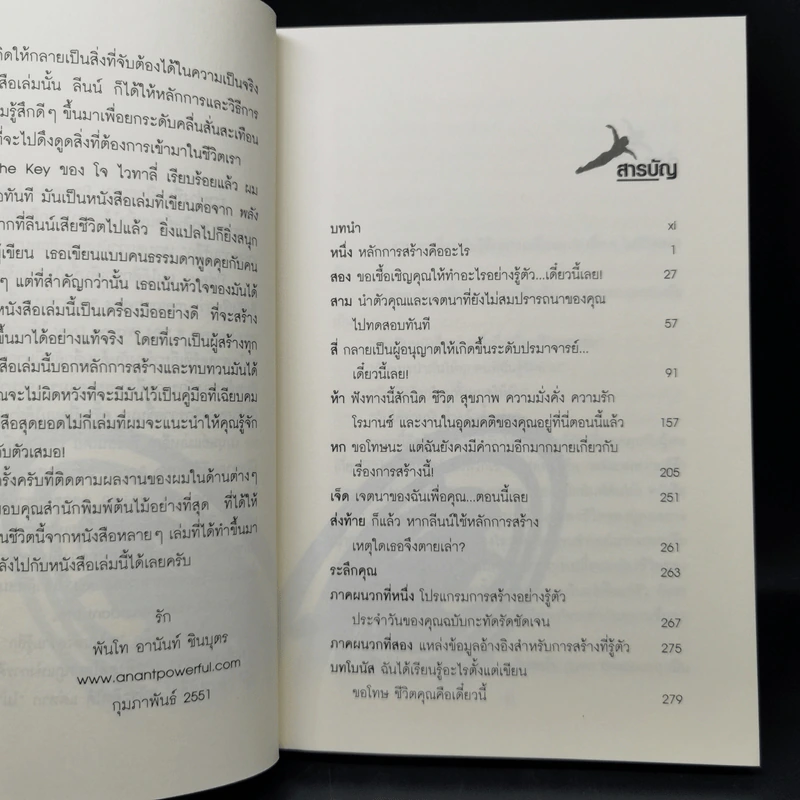 กิดให้กลายเป็นสิ่งที่จับต้องได้ในความเป็นจริง
สือเล่มนั้น ลีนน์ ก็ได้ให้หลักการและวิธีการ
มรู้สึกดีๆ ขึ้นมาเพื่อยกระดับคลื่นสั่นสะเทือน
ที่จะไปดึงดูดสิ่งที่ต้องการเข้ามาในชีวิตเรา
he Key ของ โจ ไวทาลี่ เรียบร้อยแล้ว ผม
อทันที มันเป็นหนังสือเล่มที่เขียนต่อจาก พลัง
ากที่ลีนน์เสียชีวิตไปแล้ว ยิ่งแปลไปก็ยิ่งสนุก
ผู้เขียน เธอเขียนแบบคนธรรมดาพูดคุยกับคน
ๆ แต่ที่สำคัญกว่านั้น เธอเน้นหัวใจของมันได้
หนังสือเล่มนี้เป็นเครื่องมืออย่างดี ที่จะสร้าง
ขึ้นมาได้อย่างแท้จริง โดยที่เราเป็นผู้สร้างทุก
สือเล่มนี้บอกหลักการสร้างและทบทวนมันได้
ณจะไม่ผิดหวังที่จะมีมันไว้เป็นคู่มือที่เฉียบคม
สือสุดยอดไม่กี่เล่มที่ผมจะแนะนำให้คุณรู้จัก
กับตัวเสมอ!
รั้งครับที่ติดตามผลงานของผมในด้านต่างๆ
ขอบคุณสำนักพิมพ์ต้นไม้อย่างที่สุด ที่ได้ให้
นชีวิตนี้จากหนังสือหลายๆ เล่มที่ได้ทำขึ้นมา
ลังไปกับหนังสือเล่มนี้ได้เลยครับ
รัก
พันโท อานันท์ ชินบุตร
www.anantpowerful.com
กุมภาพันธ์ 2551
สารบัญ
บทนำ xi
หนึ่ง หลักการสร้างคืออะไร 1
สอง ขอเชื้อเชิญคุณให้ทำอะไรอย่างรู้ตัว...เดี๋ยวนี้เลย! 27
สาม นำตัวคุณและเจตนาที่ยังไม่สมปรารถนาของคุณ
ไปทดสอบทันที 57
สี่ กลายเป็นผู้อนุญาตให้เกิดขึ้นระดับปรมาจารย์...
เดี๋ยวนี้เลย! 91
ห้า ฟังทางนี้สักนิด ชีวิต สุขภาพ ความมั่งคั่ง ความรัก
โรมานซ์ และงานในอุดมคติของคุณอยู่ที่นี่ตอนนี้แล้ว 157
หก ขอโทษนะ แต่ฉันยังคงมีคำถามอีกมากมายเกี่ยวกับ
เรื่องการสร้างนี้! 205
เจ็ด เจตนาของฉันเพื่อคุณ...ตอนนี้เลย 251
ส่งท้าย ก็แล้ว หากลีนน์ใช้หลักการสร้าง
เหตุใดเธอจึงตายเล่า? 261
ระลึกคุณ 263
ภาคผนวกที่หนึ่ง โปรแกรมการสร้างอย่างรู้ตัว
ประจำวันของคุณฉบับกะทัดรัดชัดเจน 267
ภาคผนวกที่สอง แหล่งข้อมูลอ้างอิงสำหรับการสร้างที่รู้ตัว 275
บทโบนัส ฉันได้เรียนรู้อะไรตั้งแต่เขียน
ขอโทษ ชีวิตคุณคือเดี๋ยวนี้ 279